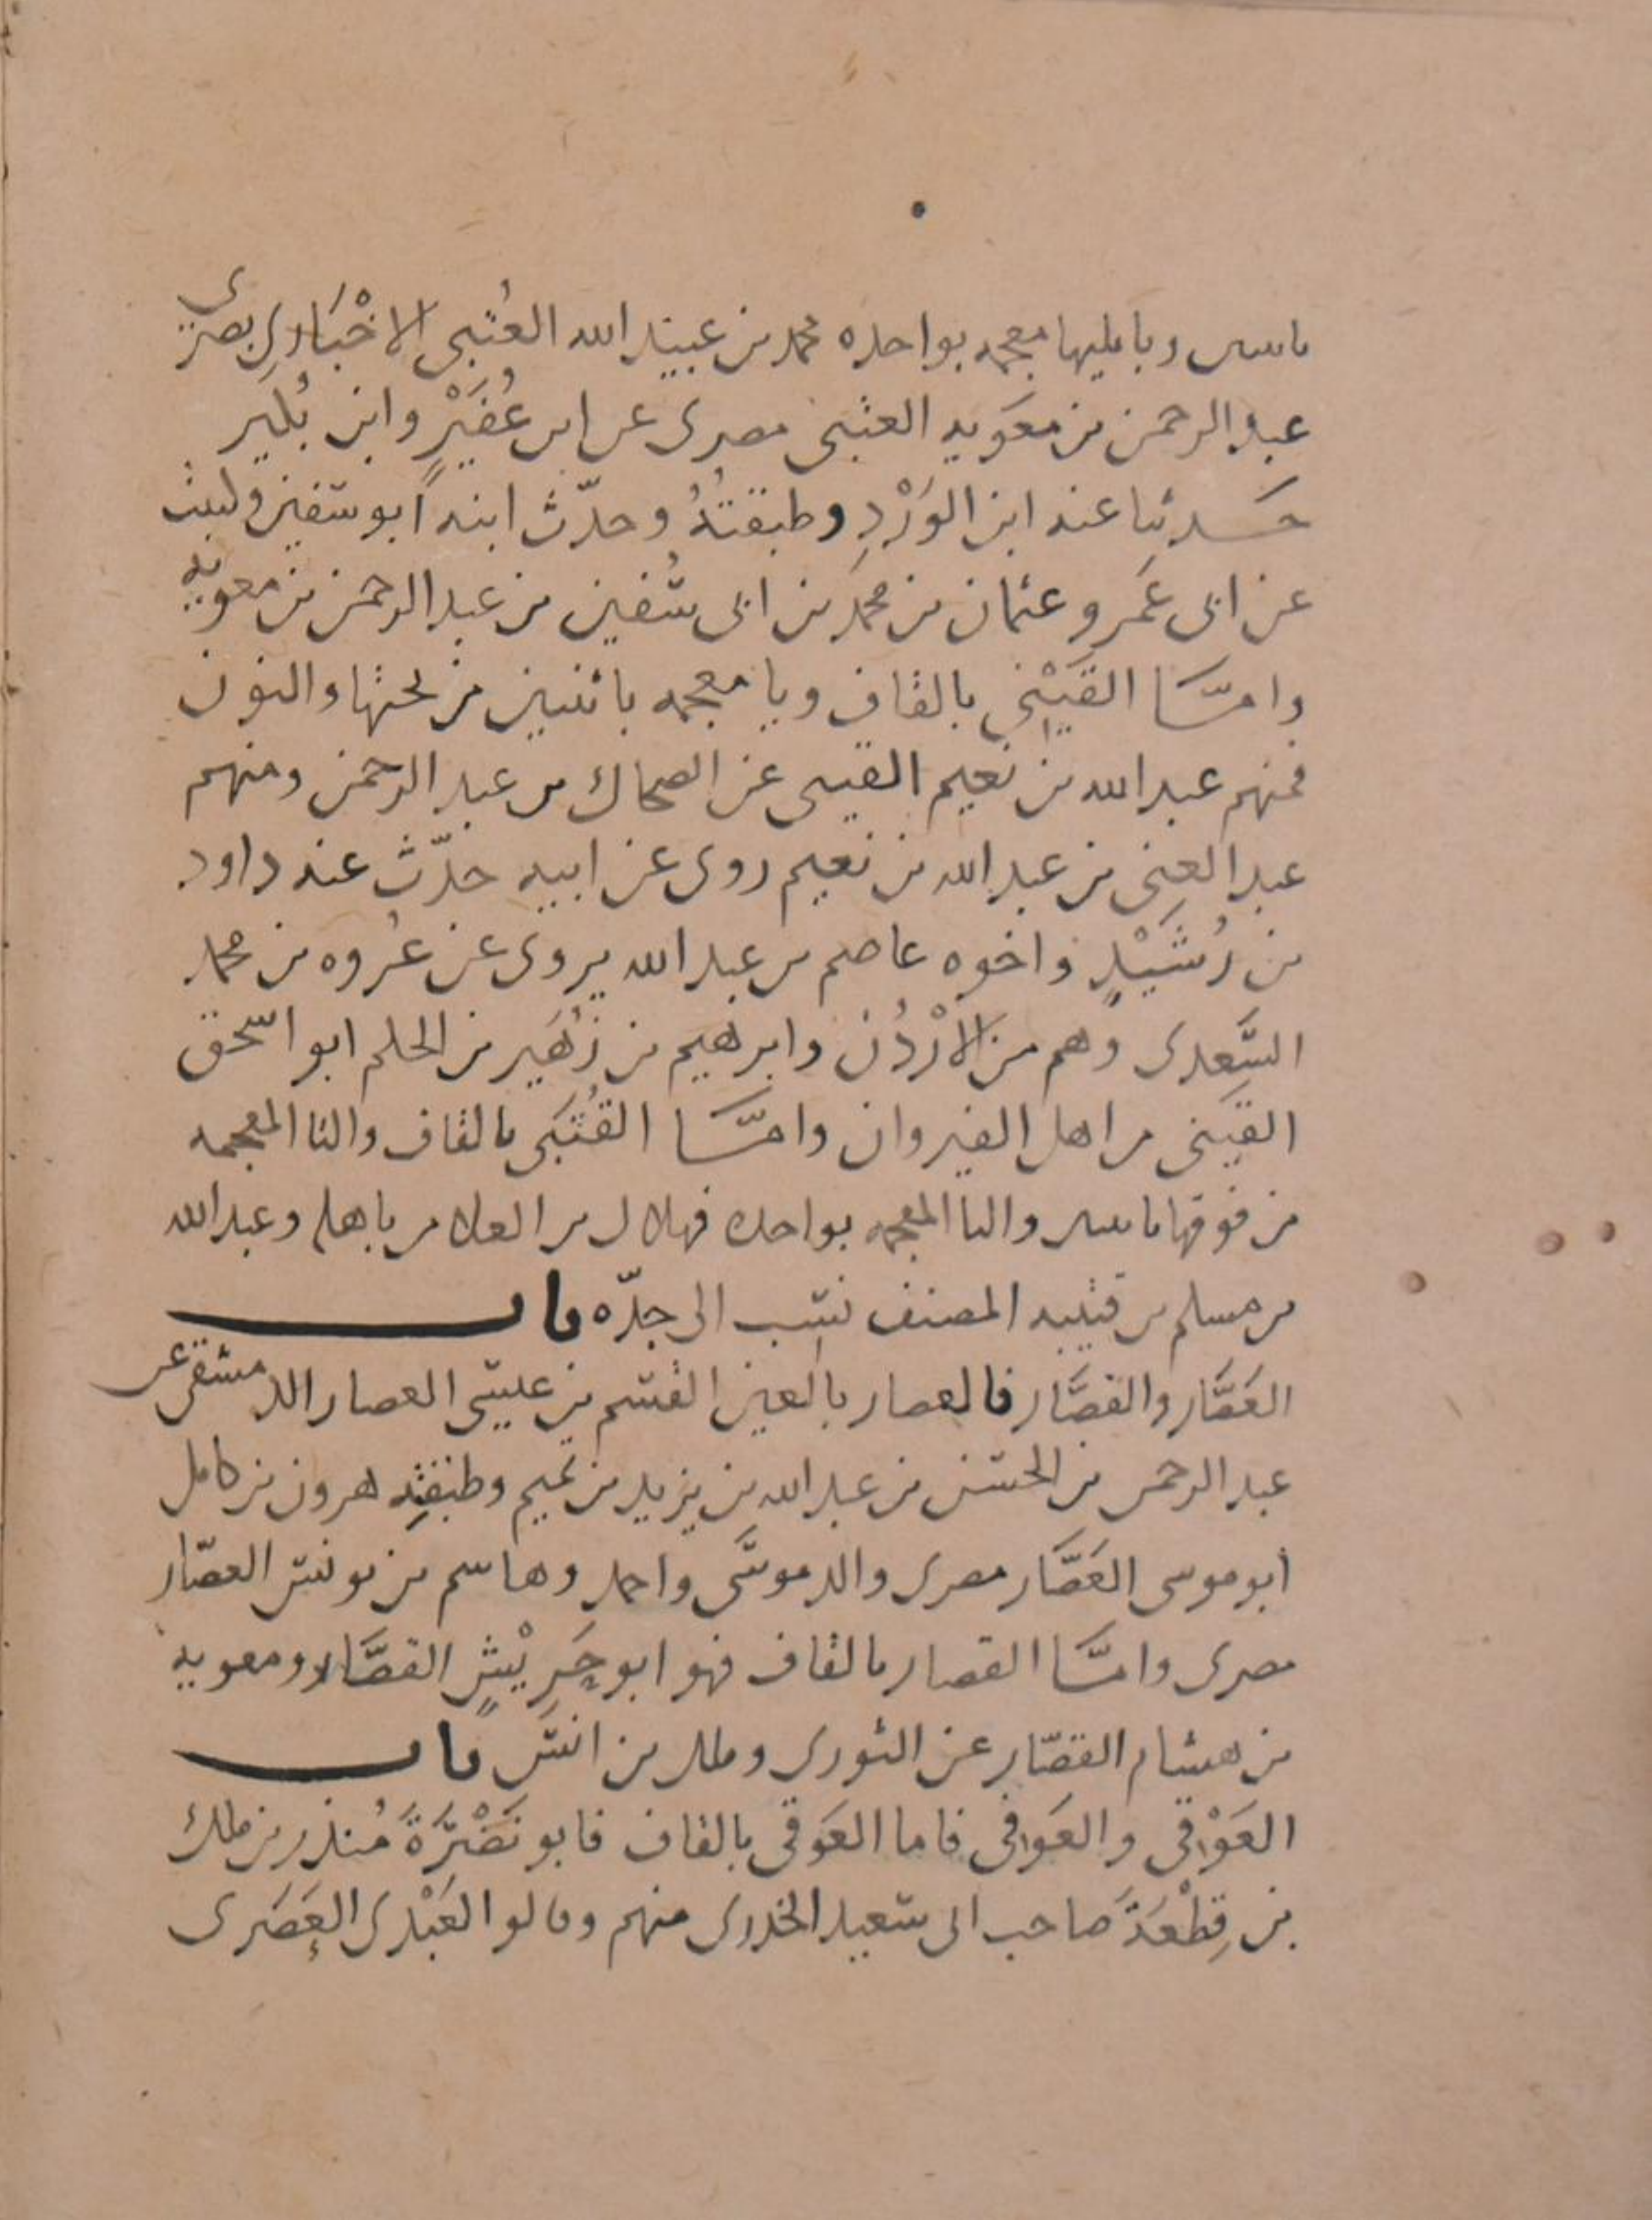 باسس وبا يليها معجمه بواحده محمد بن عبيد الله العُتْبى الاخْبَارى بصرى
عبد الرحمن بن معَويه العتبى مصرى عن ابن عُفَيْرٍ وابن بُكير
حَدثنا عنه ابن الوَرْدِ وطبقتُهُ وحدّث ابنه ابو سفين وليث
عن ابى عَمرو عثمان بن محمد بن ابى سُفين بن عبد الرحمن بن معويه
وامّا القَيْنى بالقاف ويا معجمه باثنين من تحتها والنون
فمنهم عبد الله بن نعيم القينى عن الضحاك بن عبد الرحمن ومنهم
عبد الغنى بن عبد الله بن نعيم روى عن ابيه حدّث عنه داود
بن رُشَيْدٍ واخوه عاصم بن عبد الله يروى عن عُروه بن محمد
السَّعدى وهم من الارْدُن وابرهيم بن زُهَير بن الحكم ابو اسحق
القينى من اهل القيروان وامّا القُتَبى بالقاف والتا المعجمه
من فوقها باسس والبا المعجمه بواحده فهلال بن العلا من باهله وعبد الله
بن مسلم بن قتيبه المصنف نسب الى جدّه باب
العَصَّار والقصَّار فالعصار بالعين القسم بن عيسى العصار الدمشقى عن
عبد الرحمن بن الحسن بن عبد الله بن يزيد بن تميم وطبقتِه هرون بن كامل
ابو موسى العَصَّار مصرى والد موسَى واحمد وهاشم بن يونس العصّار
مصرى وامّا القصار بالقاف فهو ابو حَرِيْشٍ القصَّار ومعويه
بن هشام القصّار عن الثورى وملك بن انس باب
العَوْقى والعَوَفى فاما العَوَقى بالقاف فابو نَضْرَةَ مُنذر بن ملك
بن قِطْعَةَ صاحب ابى سعيد الخدرى منهم وقالوا العَبْدى العَصَرى